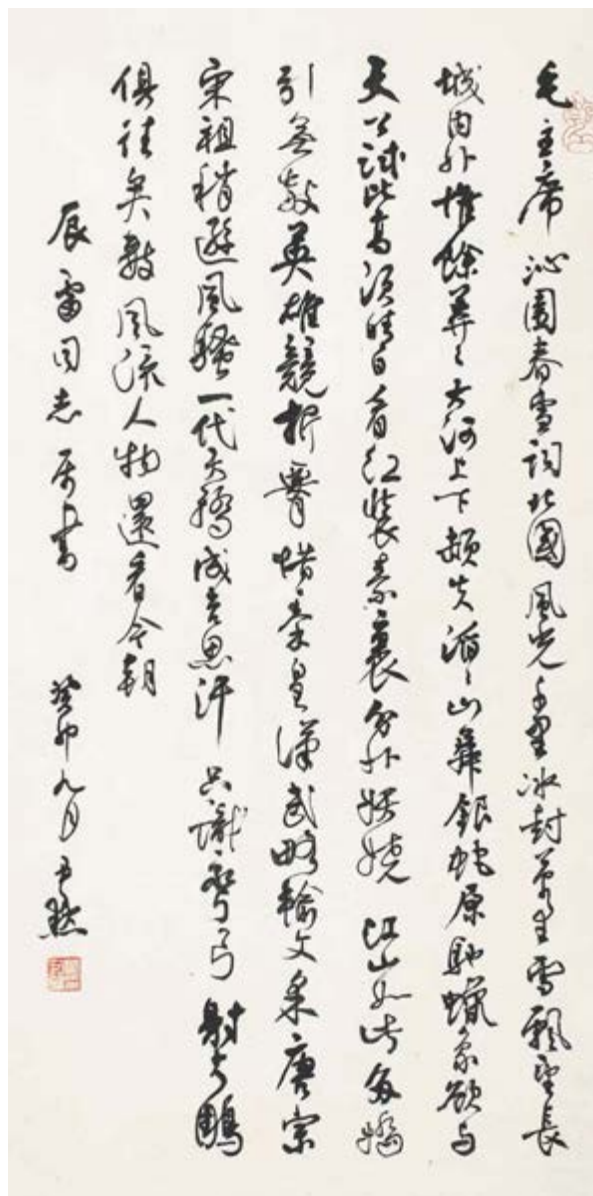 毛主席沁园春雪词北國風光千里冰封萬里雪飄望長
城内外惟餘莽々大河上下頓失滔々山舞銀蛇原馳蠟象欲与
天公試比高須晴日看红装素裹分外妖嬈江山如此多嬌
引無數英雄競折腰惜秦皇漢武略輸文采唐宗
宋祖稍遜風騷一代天驕成吉思汗只識彎弓射大鵰
俱往矣數風流人物還看今朝
辰雷同志属書
癸卯九月尹默